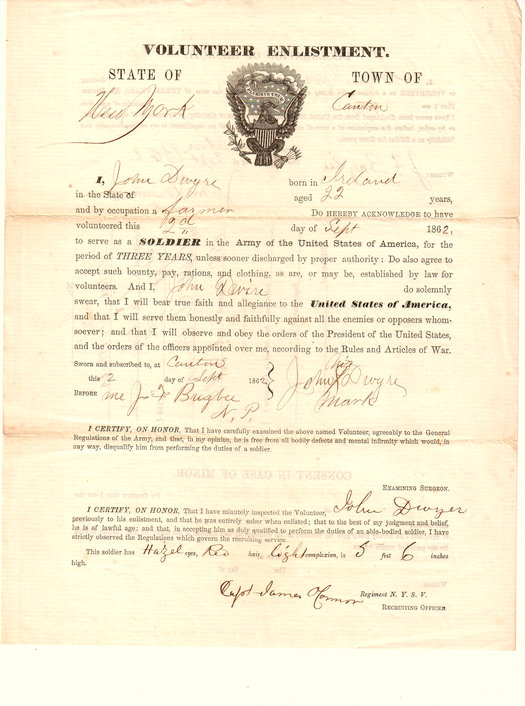 VOLUNTEER ENLISTMENT.
STATE OF TOWN OF
New York Canton
I, John Dwyre born in Ireland
in the State of aged 22 years,
and by occupation a farmer Do HEREBY ACKNOWLEDGE to have
volunteered this 2d day of Sept 1862,
to serve as a SOLDIER in the Army of the United States of America, for the
period of THREE YEARS, unless sooner discharged by proper authority: Do also agree to
accept such bounty, pay, rations, and clothing, as are, or may be, established by law for
volunteers. And I, John do solemnly
swear, that I will bear true faith and allegiance to the United States of America,
and that I will serve them honestly and faithfully against all the enemies or opposers whom-
soever; and that I will observe and obey the orders of the President of the United States,
and the orders of the officers appointed over me, according to the Rules and Articles of War.
Sworn and subscribed to, at Canton
this 2 day of Sept 1862
BEFORE me J F Bugbee
N. P.
his
John X Dwyre
mark
I CERTIFY, ON HONOR, That I have carefully examined the above named Volunteer, agreeably to the General
Regulations of the Army, and that, in my opinion, he is free from all bodily defects and mental infirmity which would, in
any way, disqualify him from performing the duties of a soldier.
CONSENT IN CASE OF MINOR
EXAMINING SURGEON.
I CERTIFY, ON HONOR, That I have minutely inspected the Volunteer, John Dwyer
previously to his enlistment, and that he was entirely sober when enlisted; that to the best of my judgment and belief,
he is of lawful age; and that, in accepting him as duly qualified to perform the duties of an able-bodied soldier, I have
strictly observed the Regulations which govern the recruiting service.
This soldier has Hazel eyes, Red hair, Light complexion, is 5 feet 6 inches
high.
Capt James Regiment N. Y. S. V.
RECRUITING OFFICER.